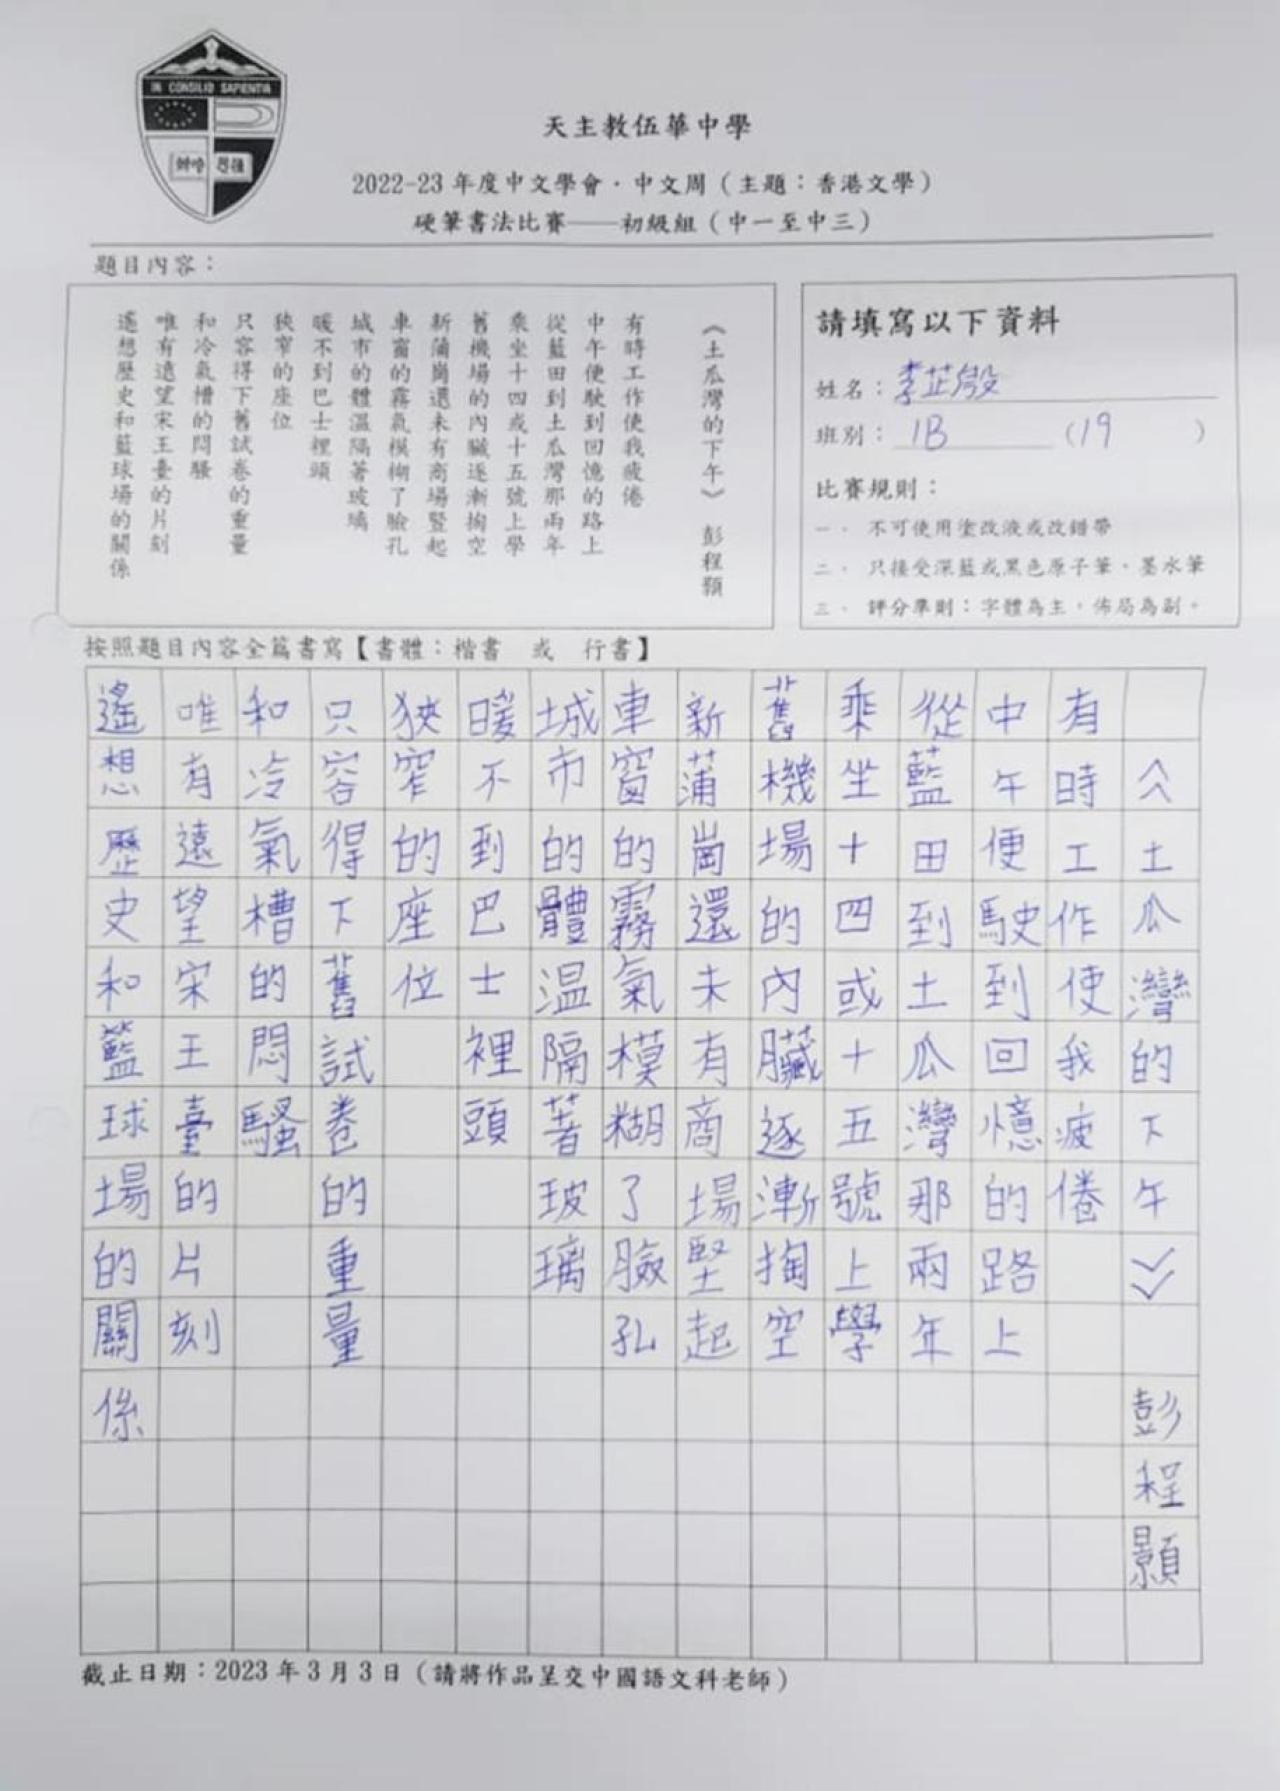 IN CONSILIO SAPIENTIA
天主教伍華中學
2022-23 年度中文學會·中文周（主題：香港文學）
硬筆書法比賽——初級組（中一至中三）
題目內容：
《土瓜灣的下午》 彭程顥
有時工作使我疲倦
中午便駛到回憶的路上
從藍田到土瓜灣那兩年
乘坐十四或十五號上學
舊機場的內臟逐漸掏空
新蒲崗還未有商場豎起
車窗的霧氣模糊了臉孔
城市的體溫隔著玻璃
暖不到巴士裡頭
狹窄的座位
只容得下舊試卷的重量
和冷氣槽的悶騷
唯有遠望宋王臺的片刻
遙想歷史和籃球場的關係
請填寫以下資料
姓名：李芷
班別：1B （19 ）
比賽規則：
一． 不可使用塗改液或改錯帶
二． 只接受深藍或黑色原子筆、墨水筆
三． 評分準則：字體為主，佈局為副。
按照題目內容全篇書寫【書體：楷書 或 行書】
《土瓜灣的下午》 彭程顥
有時工作使我疲倦
中午便駛到回憶的路上
從藍田到土瓜灣那兩年
乘坐十四或十五號上學
舊機場的內臟逐漸掏空
新蒲崗還未有商場堅起
車窗的霧氣模糊了臉孔
城市的體溫隔著玻璃
暖不到巴士裡頭
狹窄的座位
只容得下舊試卷的重量
和冷氣槽的悶騷
唯有遠望宋王臺的片刻
遙想歷史和籃球場的關係
截止日期：2023 年 3 月 3 日（請將作品呈交中國語文科老師）